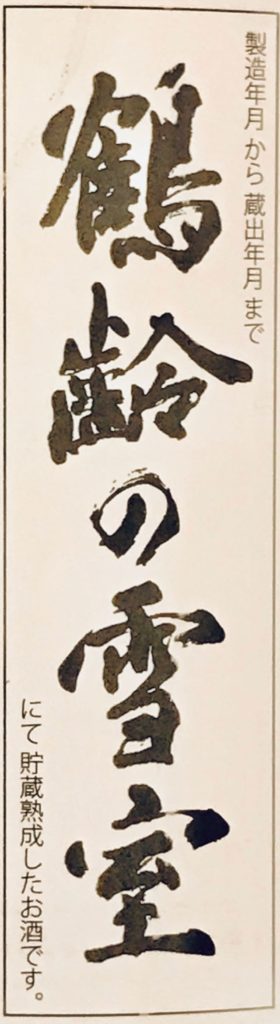 製造年月から蔵出年月まで
鶴齢の雪室
にて貯蔵熟成したお酒です。